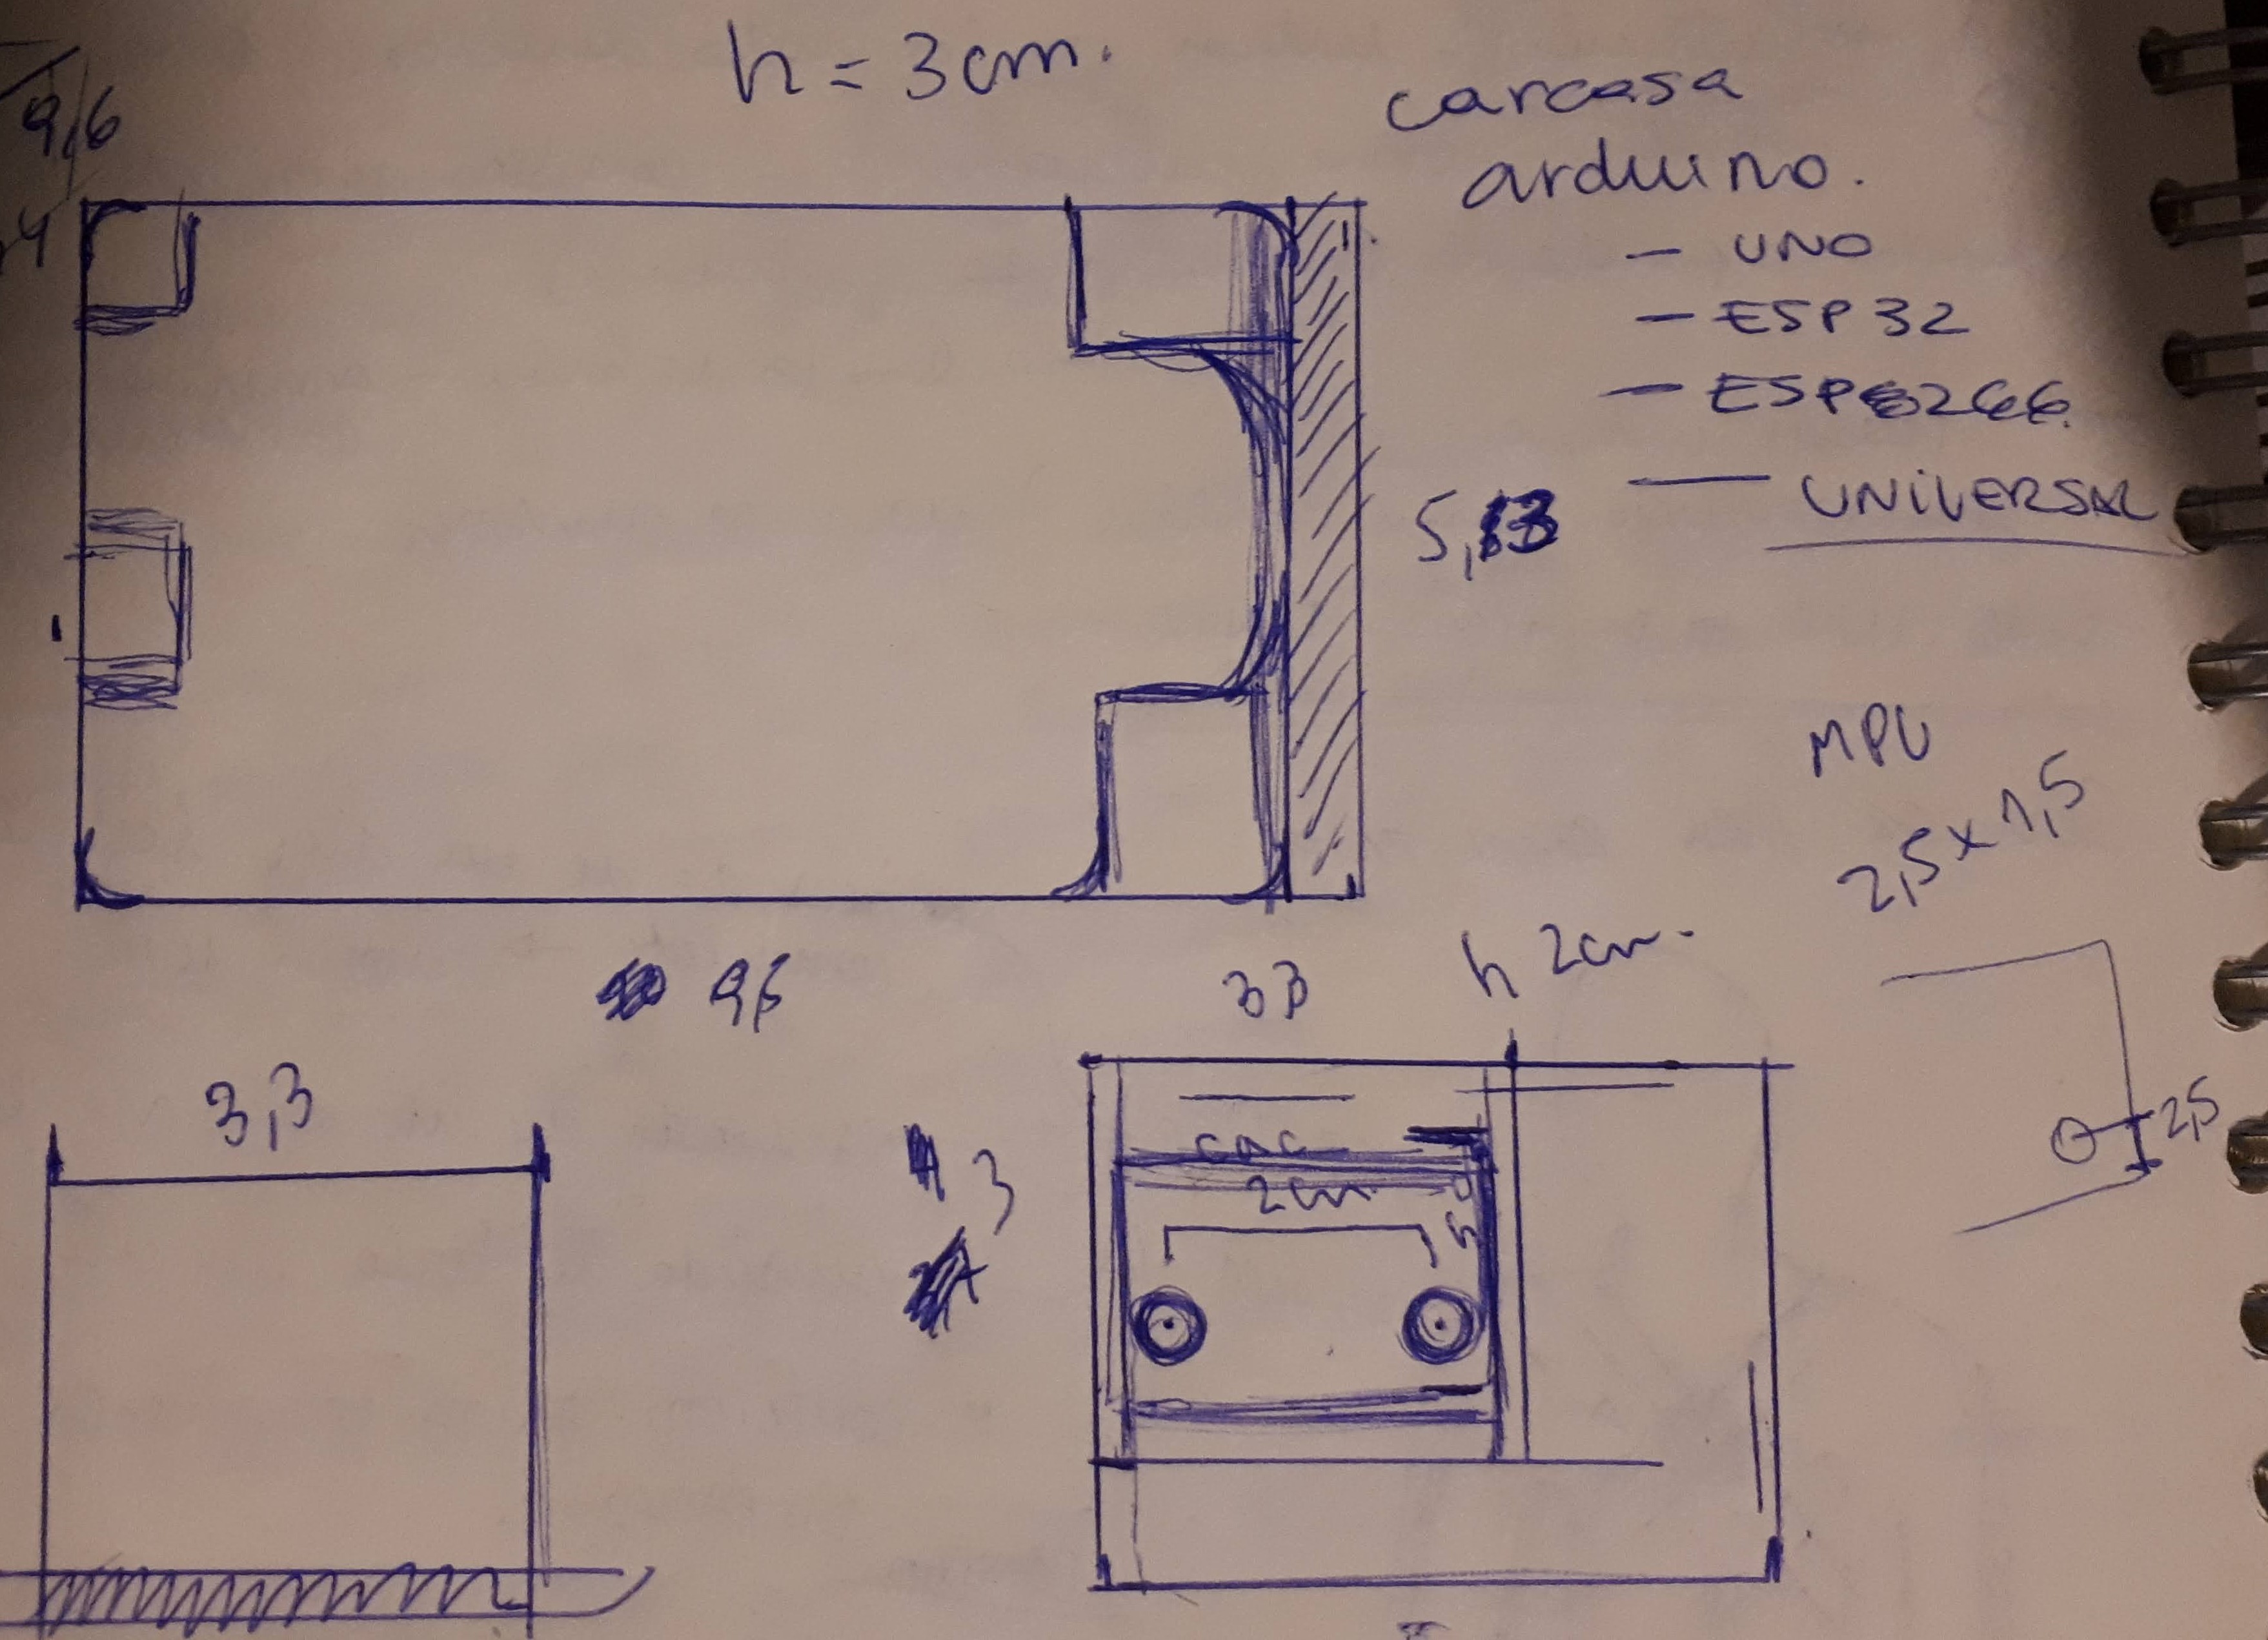 h = 3 cm.
9,6
carcasa
arduino.
- UNO
- ESP 32
- ESP8266.
- UNIVERSAL
5,
MPU
2,5 x 1,5
h 2cm.
3,3
3
2cm
2,5